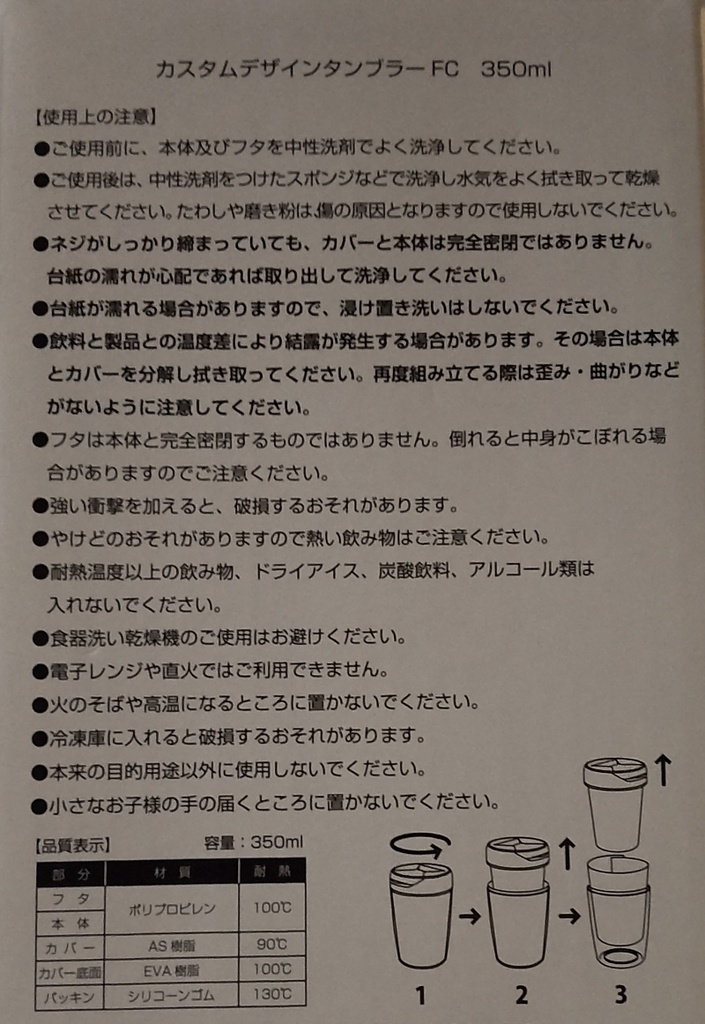 カスタムデザインタンブラーFC 350ml
【使用上の注意】
●ご使用前に、本体及びフタを中性洗剤でよく洗浄してください。
●ご使用後は、中性洗剤をつけたスポンジなどで洗浄し水気をよく拭き取って乾燥
させてください。たわしや磨き粉は、傷の原因となりますので使用しないでください。
●ネジがしっかり締まっていても、カバーと本体は完全密閉ではありません。
台紙の濡れが心配であれば取り出して洗浄してください。
●台紙が濡れる場合がありますので、浸け置き洗いはしないでください。
●飲料と製品との温度差により結露が発生する場合があります。その場合は本体
とカバーを分解し拭き取ってください。再度組み立てる際は歪み・曲がりなど
がないように注意してください。
●フタは本体と完全密閉するものではありません。倒れると中身がこぼれる場
合がありますのでご注意ください。
●強い衝撃を加えると、破損するおそれがあります。
●やけどのおそれがありますので熱い飲み物はご注意ください。
●耐熱温度以上の飲み物、ドライアイス、炭酸飲料、アルコール類は
入れないでください。
●食器洗い乾燥機のご使用はお避けください。
●電子レンジや直火ではご利用できません。
●火のそばや高温になるところに置かないでください。
●冷凍庫に入れると破損するおそれがあります。
●本来の目的用途以外に使用しないでください。
●小さなお子様の手の届くところに置かないでください。
【品質表示】 容量：350ml
部分 材質 耐熱
フタ ポリプロピレン 100℃
本体
カバー AS樹脂 90℃
カバー底面 EVA樹脂 100℃
パッキン シリコーンゴム 130℃
1 2 3